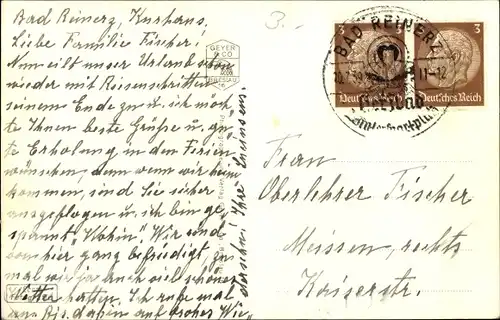 Bad Reinerz, Kurhaus.
Liebe Familie Fischer!
Nun eilt unser Urlaub schon
wieder mit Riesenschritten
seinem Ende zu u. ich möch
te Ihnen beste Grüße u. gu
te Erholung in den Ferien
wünschen, denn wenn wir heim
kommen, sind Sie sicher
ausgeflogen u. ich bin ge
spannt "Wohin". Wir sind
von hier ganz befriedigt, zu
mal wir ja auch viel schönes
Wetter hatten. Ich rufe mal
an. Bis dahin auf frohes Wie
dersehn! Ihre
3.-
GEYER
& CO
BRESLAU
16
BAD REINERZ
3
3
Deutsches Reich
Deutsches Reich
Frau
Oberlehrer Fischer
Meissen, rechts
Kaiserstr.